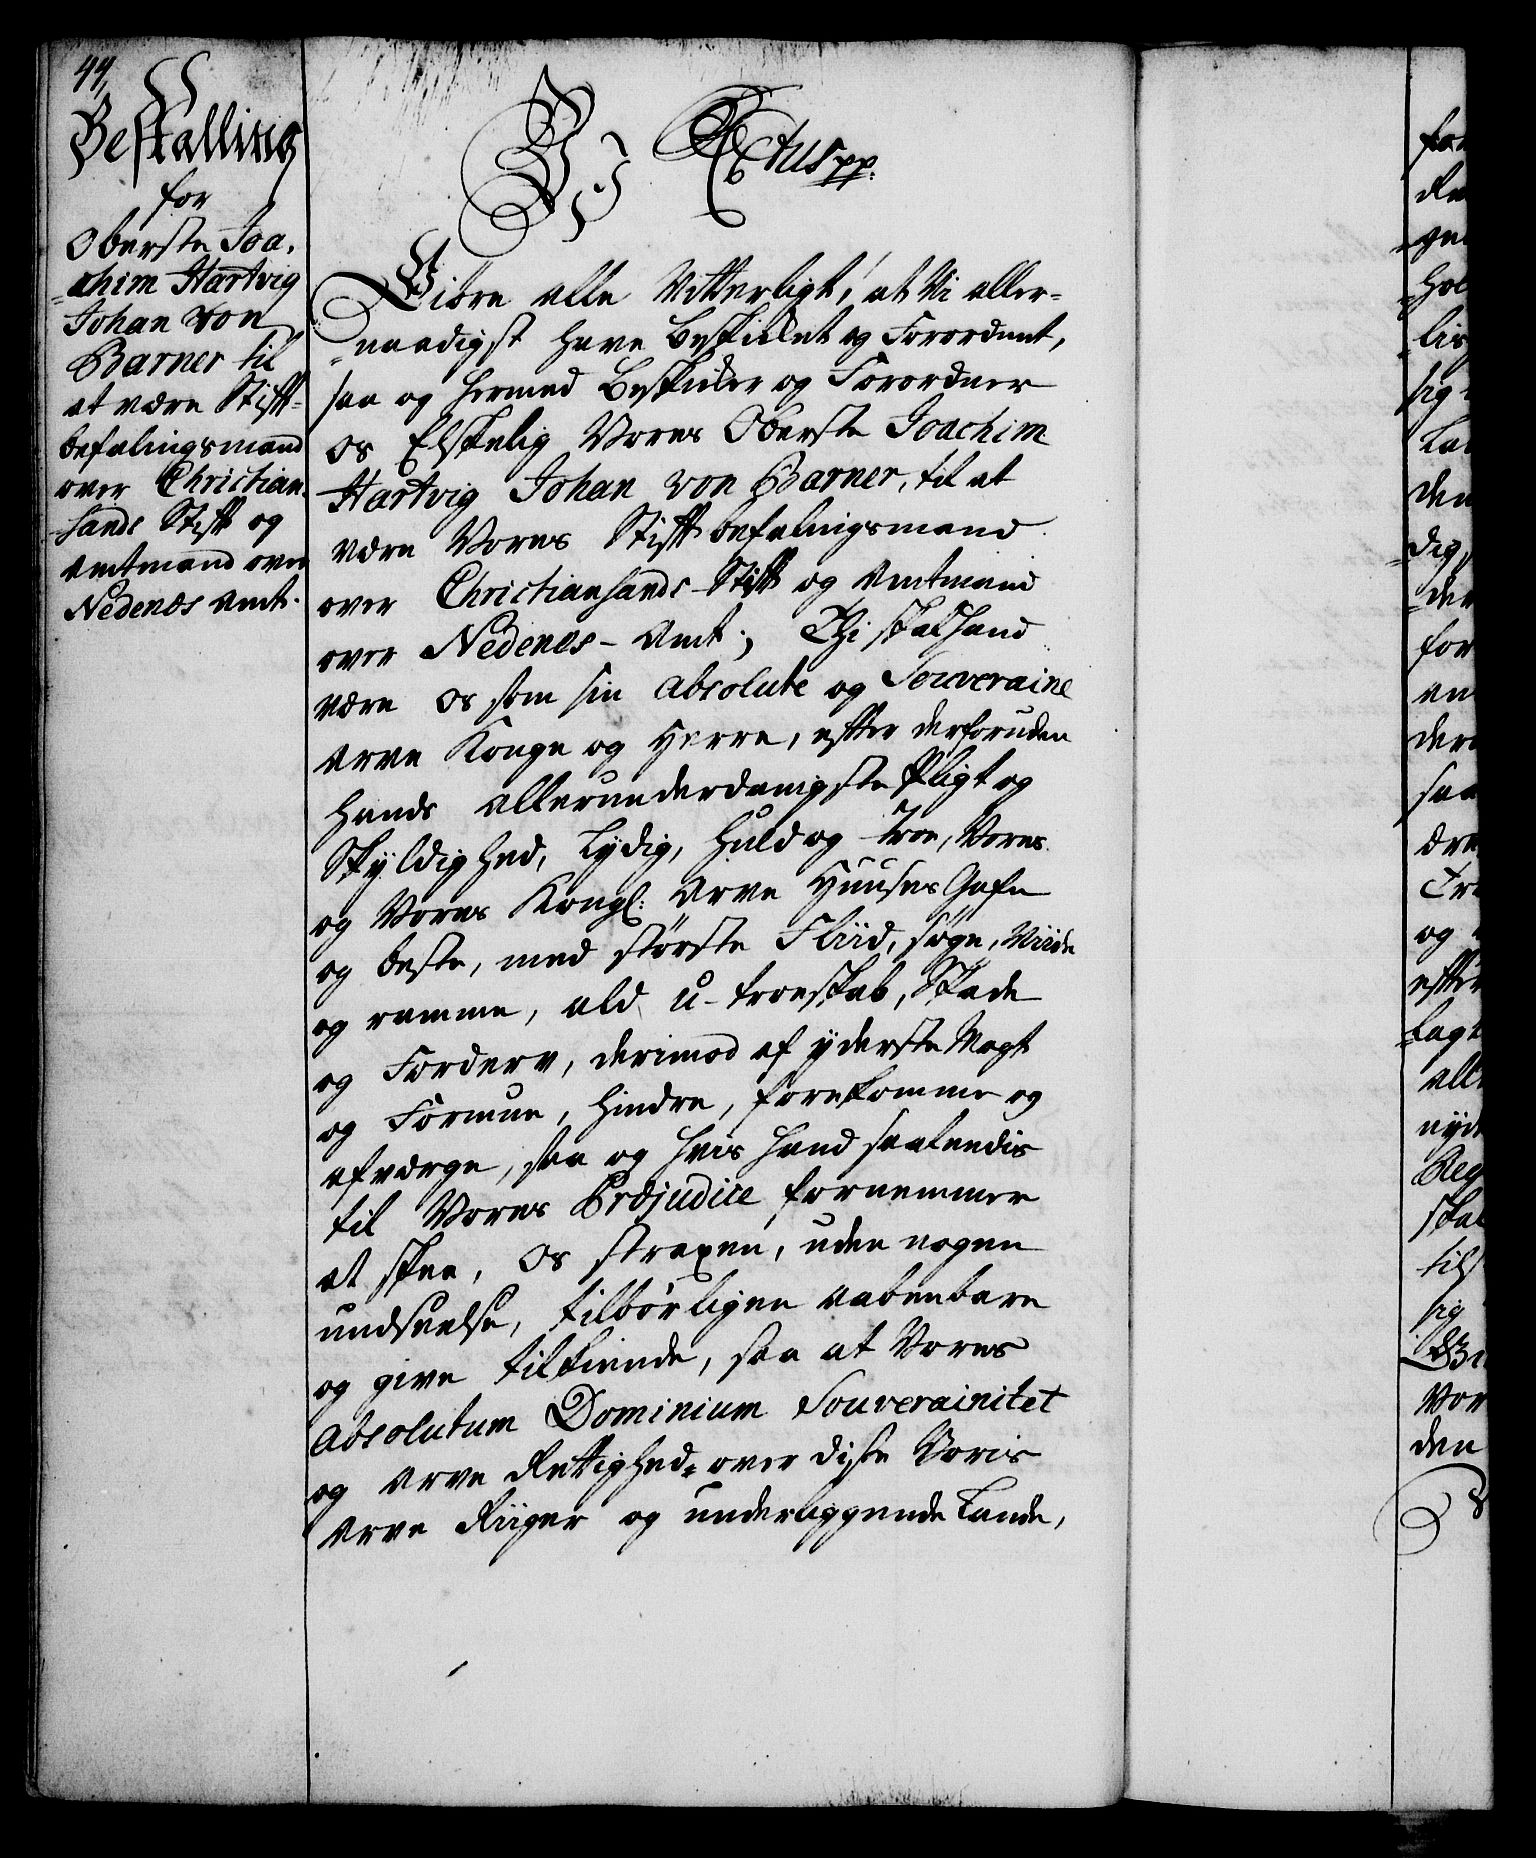 44,
Bestalling
for
Oberste Joa,
=chim Hartvig
Johan von
Barner til
at være Stift-
befalingsmand
over Christian,
=sands Stift og
Amtmand over
Nedenæs Amt.
Vi Xtus pp:
Giøre alle Vitterligt, at Vi aller=
=naadigst have Beskikket og Forordnet,
saa og hermed Beskikker og Forordner
os Elskelig Vores Oberste Joachim
Hartvig Johan von Barner, til at
være Vores Stiftbefalingsmand
over Christiansands-Stift og Amtmand
over Nedenæs-Amt; Thi skal hand
være os som sin Absolute og Souveraine
Arve Konge og Herre, efter derforuden
hands allerunderdanigste Pligt og
Skyldighed, Lydig, huld og troe, Vores
og Vores Kongl: Arve Huuses Gafn
og beste, med største Fliid, søge, Viide
og ramme, ald u-troeskab, Skade
og Forderv, derimod af yderste Magt
og Formue, hindre, forekomme og
afværge, saa og hvis hand saaledis
til Vores Præjudice fornemmer
at skee, os straxen, uden nogen
undseelse, tilbørligen aabenbare
og give tilkiende, saa at Vores
Absolutum Dominium Souverainitet
og Arve Rettighed over disse Voris
Arve Riiger og underliggende Lande,